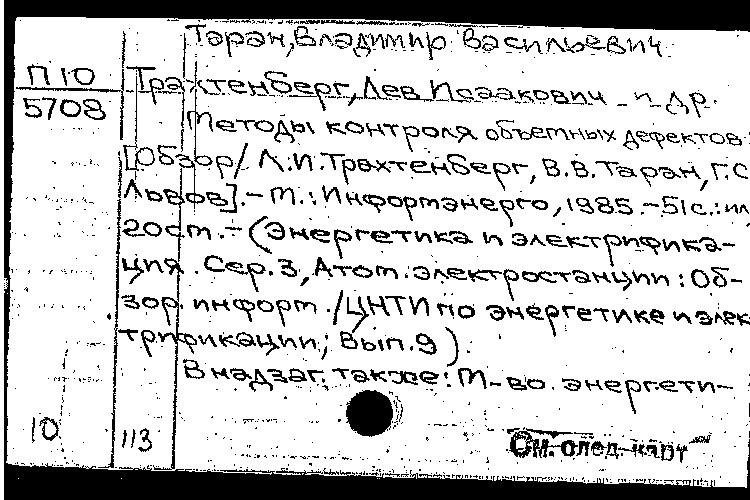 Таран, Владимир Васильевич
П10
5708
Трахтенберг, Лев Исаакович и др.
Методы контроля объемных дефектов:
[Обзор / Л.И. Трахтенберг, В.В. Таран, Г.С.
Львов]. - М.: Информэнерго, 1985. - 51 с.: ил;
20 см. - (Энергетика и электрифика-
ция. Сер. 3, Атом. электростанции: Об-
зор. информ. / ЦНТИ по энергетике и элек
трификации; Вып. 9).
В надзаг. также: М-во энергети-
10
113
См. след. карт